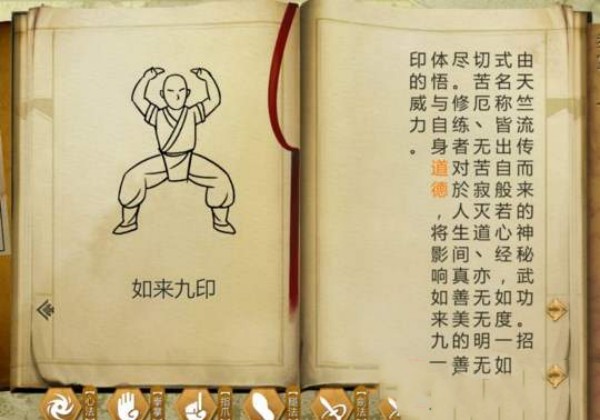 如来九印
由天竺流传而来的神秘武功。招
式名称皆出自般若心经，如度一如
切苦厄、无苦寂灭道、亦无无明无
尽。修练者对於人生间真善美的善
体悟与自身道德，将影响如来九一
印的威力。
心法
拳掌
指爪